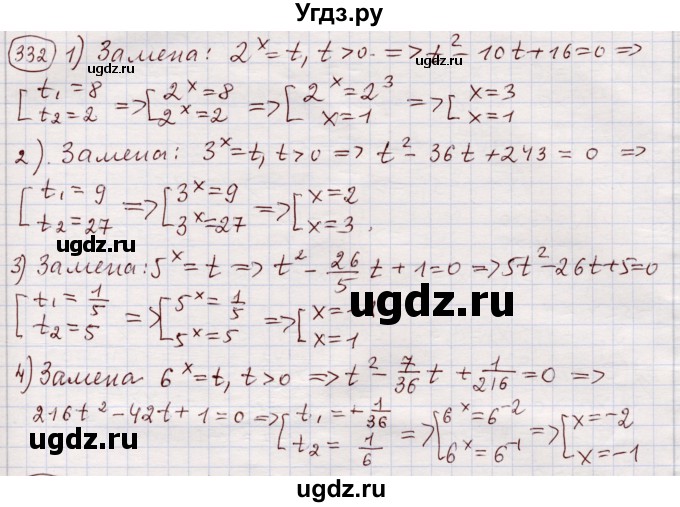 Угдз.ру
332 1) Замена: 2^x = t, t > 0 => t² - 10t + 16 = 0 =>
ugdz.ru ugdz.ru
[t₁ = 8 t₂ = 2 => [2^x = 8 2^x = 2 => [2^x = 2³ x = 1 => [x = 3 x = 1
2). Замена: 3^x = t, t > 0 => t² - 36t + 243 = 0 =>
[t₁ = 9 t₂ = 27 => [3^x = 9 3^x = 27 => [x = 2 x = 3.
ugdz.ru
3) Замена: 5^x = t => t² - 26/5 t + 1 = 0 => 5t² - 26t + 5 = 0
[t₁ = 1/5 t₂ = 5 => [5^x = 1/5 5^x = 5 => [x = x = 1
ugdz.ru
4) Замена 6^x = t, t > 0 => t² - 7/36 t + 1/216 = 0 =>
216t² - 42t + 1 = 0 => [t₁ = + 1/36 t₂ = 1/6 => [6^x = 6^-2 6^x = 6^-1 => [x = -2 x = -1
ugdz.ru ugdz.ru
ugdz.ru